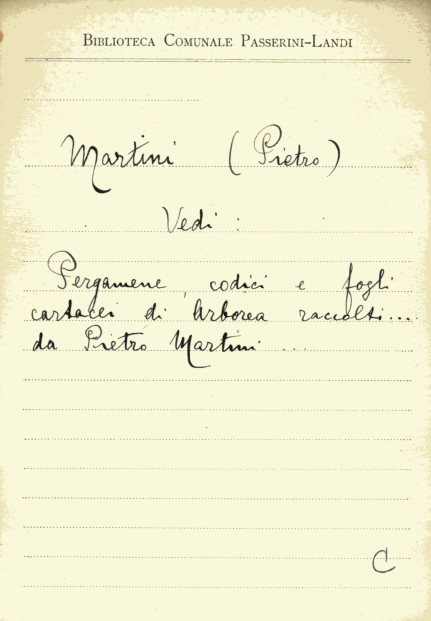 BIBLIOTECA COMUNALE PASSERINI-LANDI
Martini (Pietro)
Vedi :
Pergamene, codici e fogli
cartacei di Arborea raccolti...
da Pietro Martini ...
C